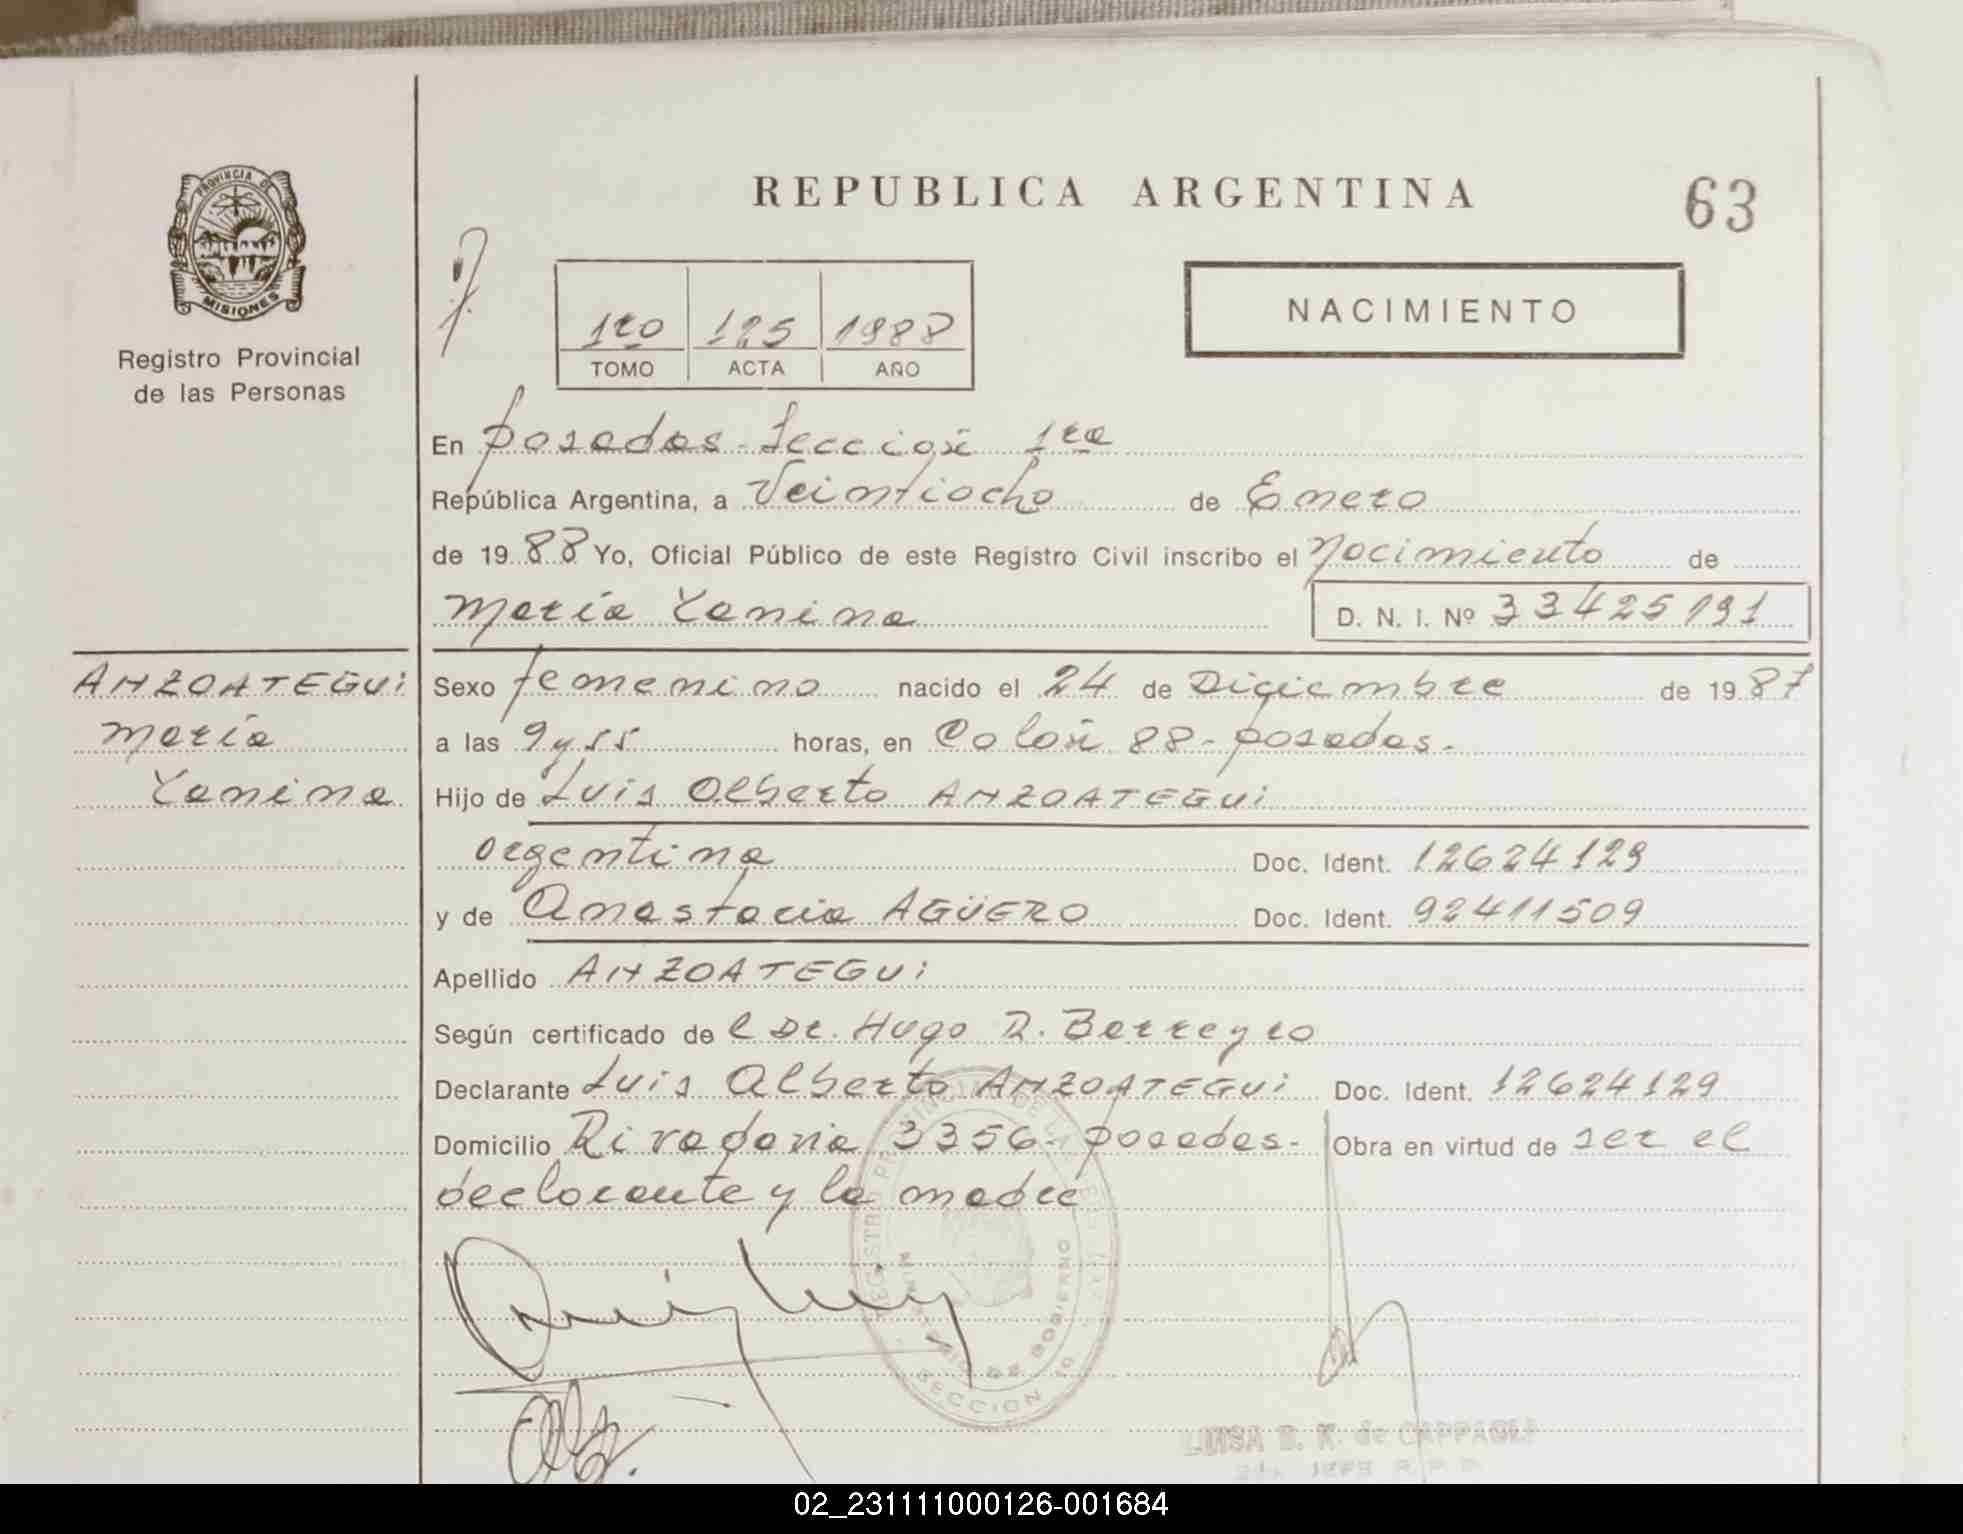 REPUBLICA ARGENTINA
63
PROVINCIA DE
MISIONES
Registro Provincial
de las Personas
1ro 125 1988
TOMO ACTA AÑO
NACIMIENTO
En Posadas - Sección 1ra
República Argentina, a Veintiocho de Enero
de 19 88 Yo, Oficial Público de este Registro Civil inscribo el Nacimiento de
María Yanina D. N. I. Nº 33425191
ANZOATEGUI
María
Yanina
Sexo femenino nacido el 24 de Diciembre de 19 87
a las 9 y 55 horas, en Colón 88 - Posadas.
Hijo de Luis Alberto ANZOATEGUI
argentina Doc. Ident. 12624129
y de Anastacia AGÜERO Doc. Ident. 92411509
Apellido ANZOATEGUI
Según certificado de l Dr. Hugo R. Berreyro
Declarante Luis Alberto ANZOATEGUI Doc. Ident. 12624129
Domicilio Rivadavia 3356 - Posadas - Obra en virtud de ser el
declarante y la madre
REGISTRO PROVINCIAL DE LAS
MINISTERIO DE GOBIERNO
SECCION 1a
LUISA B. K. de CAPPAOLI
JEFE R. P. P.
02_231111000126-001684